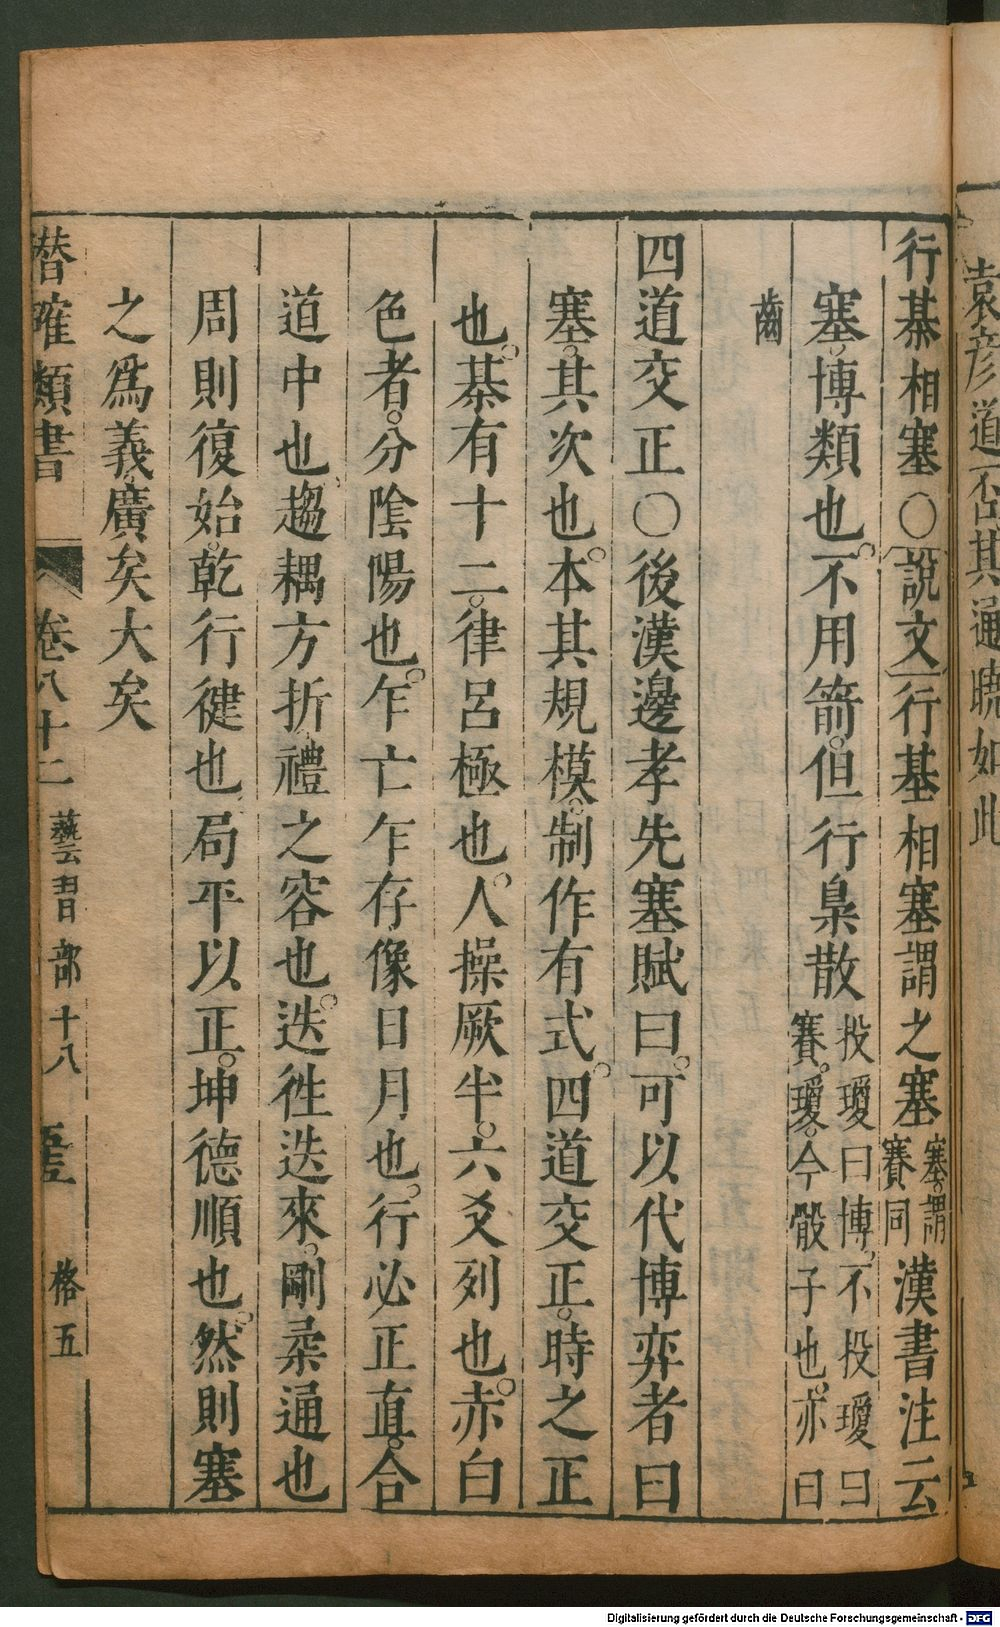 袁彦道一否其通曉如此
行棊相塞〇說文行基相塞謂之塞塞謂賽同漢書注云
塞博類也不用箭但行梟散投瓊曰博不投瓊曰賽瓊今骰子也亦曰
齒
四道交正〇後漢邊孝先塞賦曰可以代博弈者曰
塞其次也本其規模制作有式四道交正時之正
也棊有十二律呂極也人操厥半六爻列也赤白
色者分陰陽也乍亡乍存像日月也行必正直合
道中也趨耦方折禮之容也迭徃迭來剛柔通也
周則復始乾行健也局平以正坤德順也然則塞
之爲義廣矣大矣
潛確類書 卷八十二 藝習部十八 格五
Digitalisierung gefördert durch die Deutsche Forschungsgemeinschaft - DFG